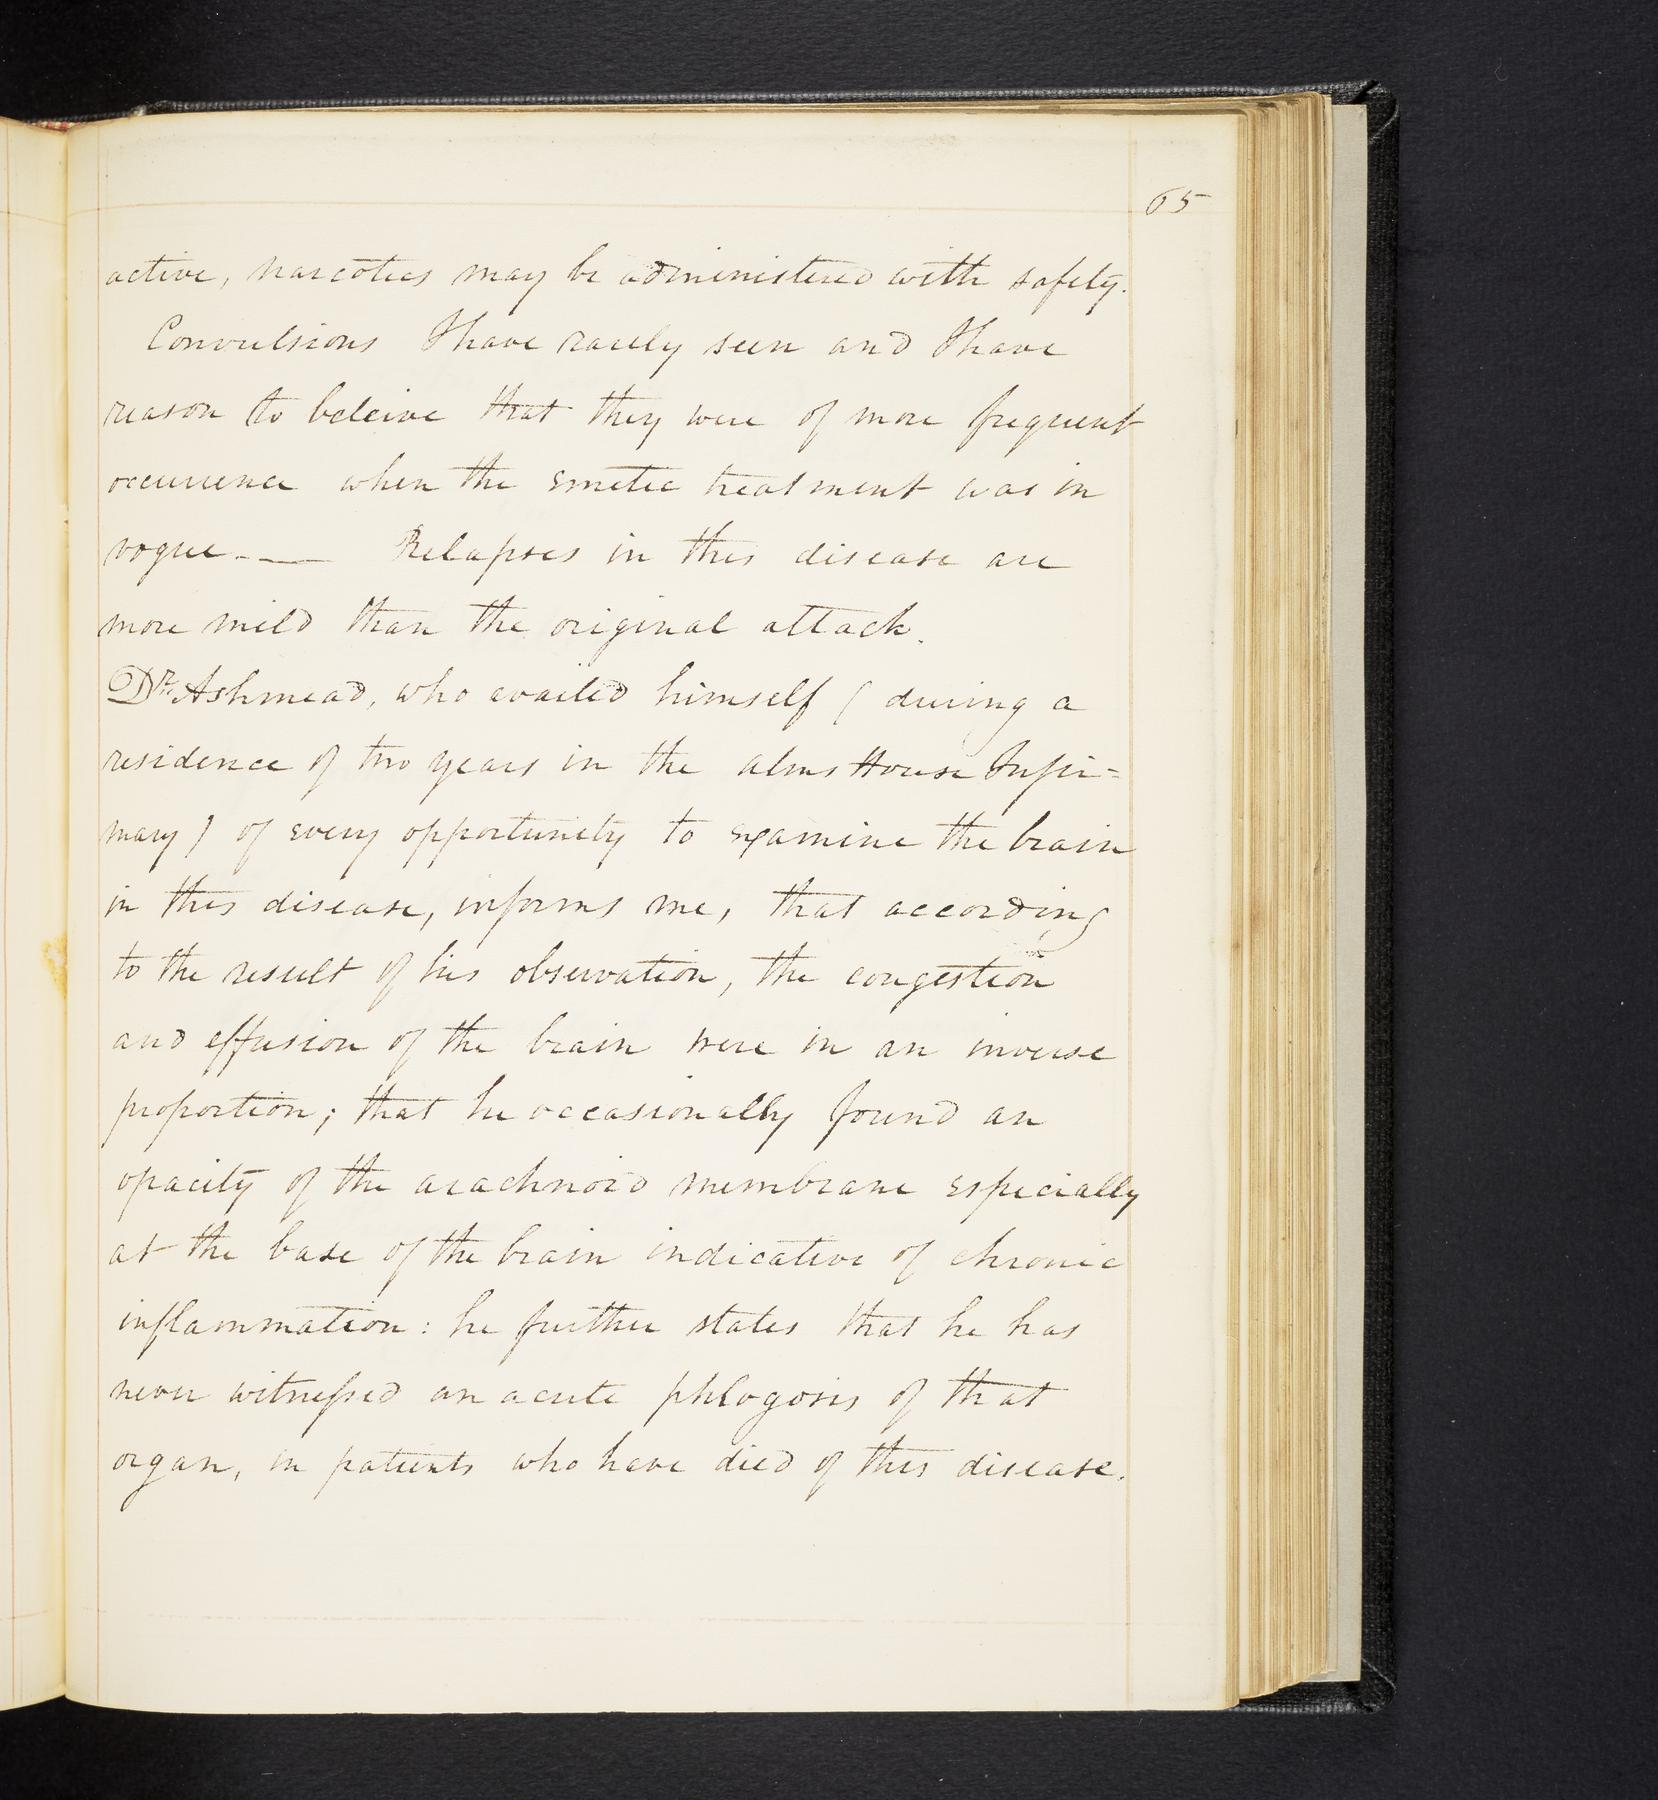 65
active, narcotics may be administered with safety.
Convulsions I have rarely seen and I have
reason to beleive that they were of more frequent
occurrence when the emetic treatment was in
vogue. — Relapses in this disease are
more mild than the original attack.
Dr. Ashmead, who availed himself (during a
residence of two years in the alms House Infir=
mary) of every opportunity to examine the brain
in this disease, informs me, that according
to the result of his observation, the congestion
and effusion of the brain were in an inverse
proportion; that he occasionally found an
opacity of the arachnoid membrane especially
at the base of the brain indicative of chronic
inflammation: he further states that he has
never witnessed an acute phlogosis of that
organ, in patients who have died of this disease.